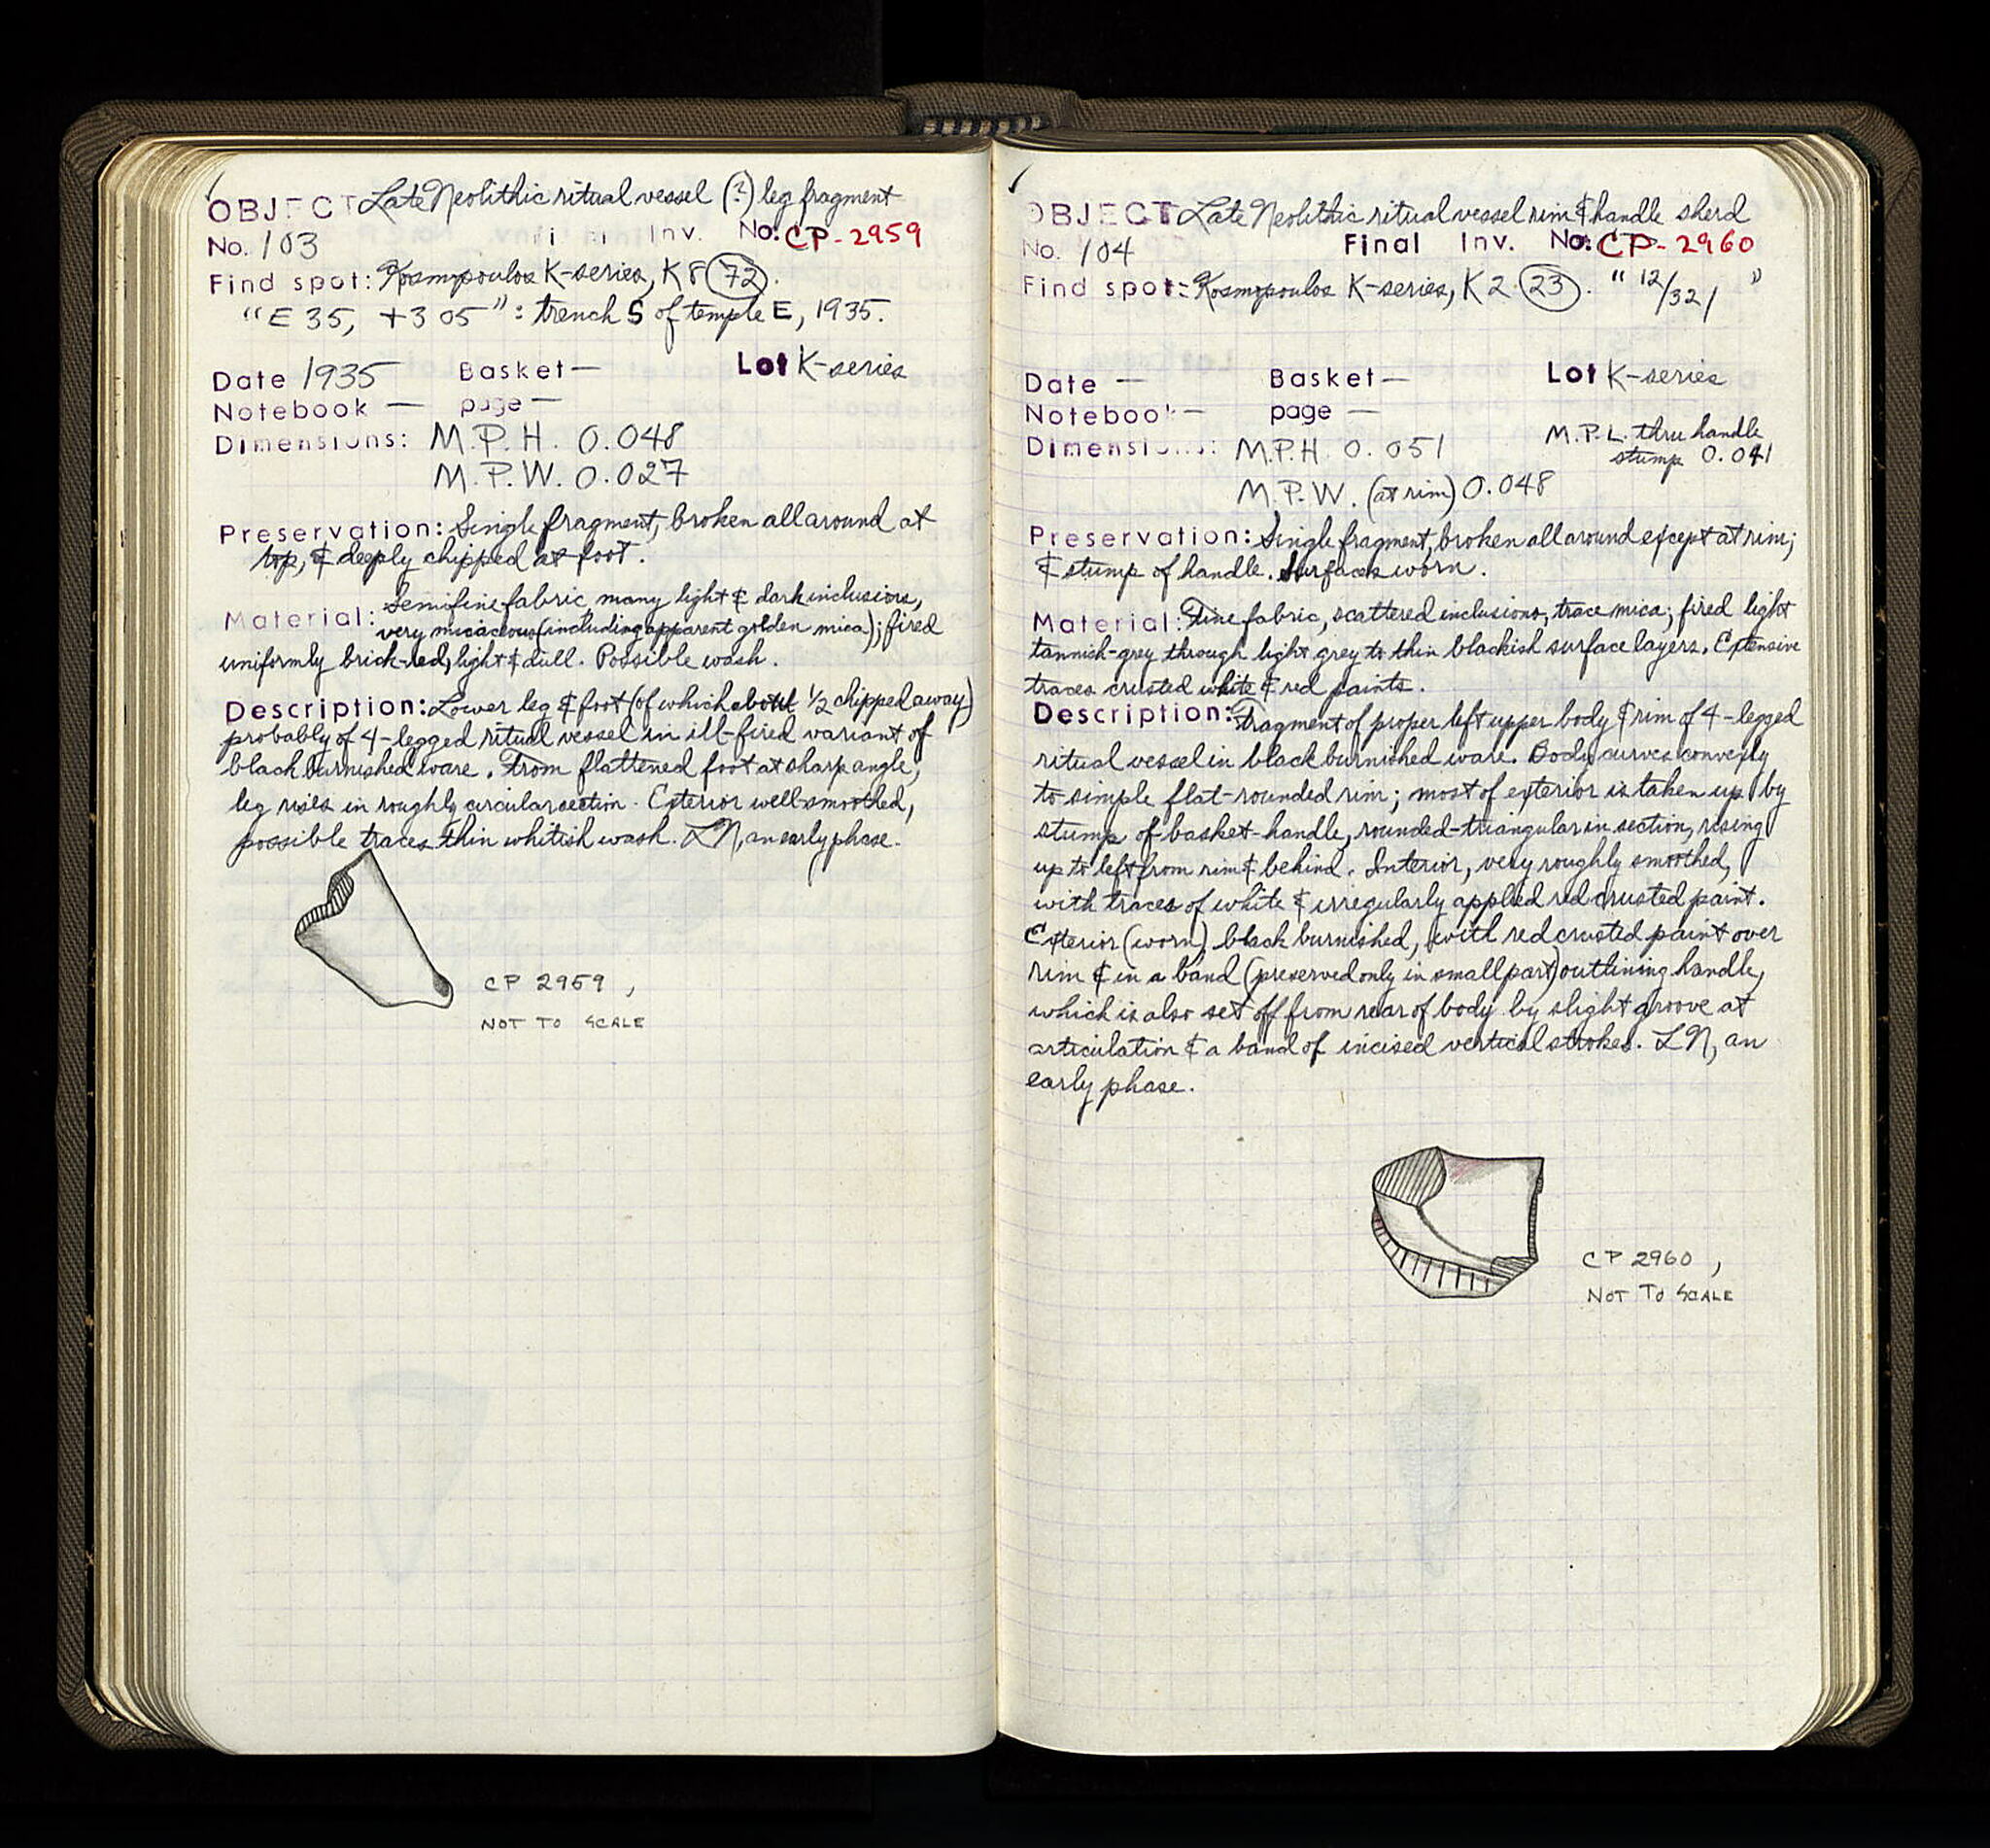 OBJECT Late Neolithic ritual vessel (?) leg fragment
No. 103 Inv. No: CP-2959
Find spot: Kosmopoulos K-series, K 8 (72).
"E 35, +3 05": trench S of temple E, 1935.
Date 1935 Basket — Lot K-series
Notebook — page —
Dimensions: M.P.H. 0.048
M.P.W. 0.027
Preservation: Single fragment, broken all around at
top, & deeply chipped at foot.
Material: Semifine fabric, many light & dark inclusions,
very micaceous (including apparent golden mica); fired
uniformly brick-red, light & dull. Possible wash.
Description: Lower leg & foot (of which about 1/2 chipped away)
probably of 4-legged ritual vessel in ill-fired variant of
black burnished ware. From flattened foot at sharp angle,
leg rises in roughly circular section. Exterior well-smoothed,
possible traces thin whitish wash. LN, an early phase.
CP 2959,
NOT TO SCALE
OBJECT Late Neolithic ritual vessel rim & handle sherd
No. 104 Final Inv. No: CP-2960
Find spot: Kosmopoulos K-series, K 2 (23). "12/32/ "
Date — Basket — Lot K-series
Notebook — page —
Dimensions: M.P.H. 0.051 M.P.L. thru handle
stump 0.041
M.P.W. (at rim) 0.048
Preservation: Single fragment, broken all around except at rim;
& stump of handle. Surfaces worn.
Material: Fine fabric, scattered inclusions, trace mica; fired light
tannish-grey through light grey to thin blackish surface layers. Extensive
traces crusted white & red paints.
Description: Fragment of proper left upper body & rim of 4-legged
ritual vessel in black burnished ware. Body curves convexly
to simple flat-rounded rim; most of exterior is taken up by
stump of basket-handle, rounded-triangular in section, rising
up to left from rim & behind. Interior, very roughly smoothed,
with traces of white & irregularly applied red crusted paint.
Exterior (worn) black burnished, with red crusted paint over
rim & in a band (preserved only in small part) outlining handle,
which is also set off from rear of body by slight groove at
articulation & a band of incised vertical strokes. LN, an
early phase.
CP 2960,
NOT TO SCALE